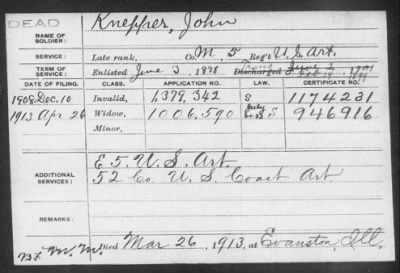 DEAD
NAME OF SOLDIER: Knepper, John
SERVICE: Late rank, Co. M. 5 Reg't U.S. Art.
TERM OF SERVICE: Enlisted June 3, 1898 Discharged
DATE OF FILING. CLASS. APPLICATION NO. CERTIFICATE NO.
1908. Dec. 10 Invalid, 1,379,342 S 1174231
1913 Apr 26 Widow, 1006,590 S 946916
Minor,
ADDITIONAL SERVICES: E 5. U. S. Art.
52 Co U. S. Coast Art
REMARKS:
Died Mar 26, 1913, at Evanston, Ill.